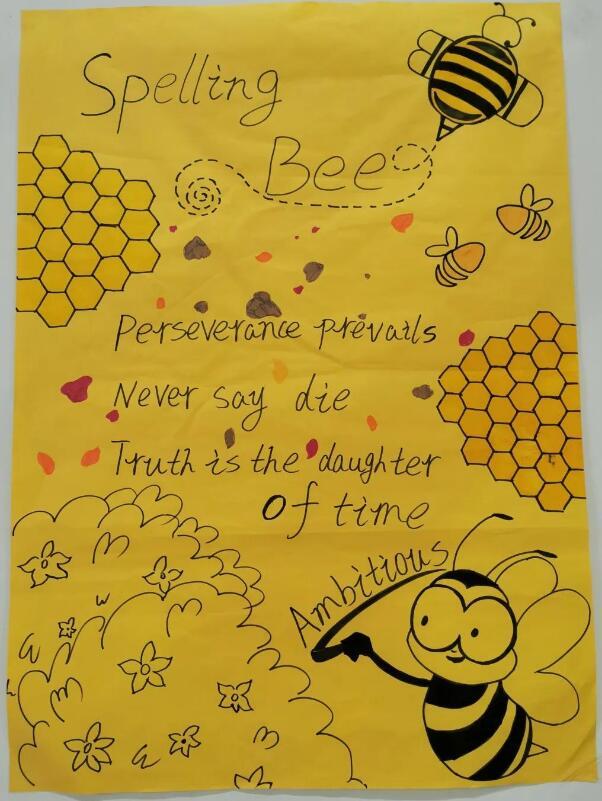 Spelling
Bee
Perseverance prevails
Never say die
Truth is the daughter
Of time
Ambitious